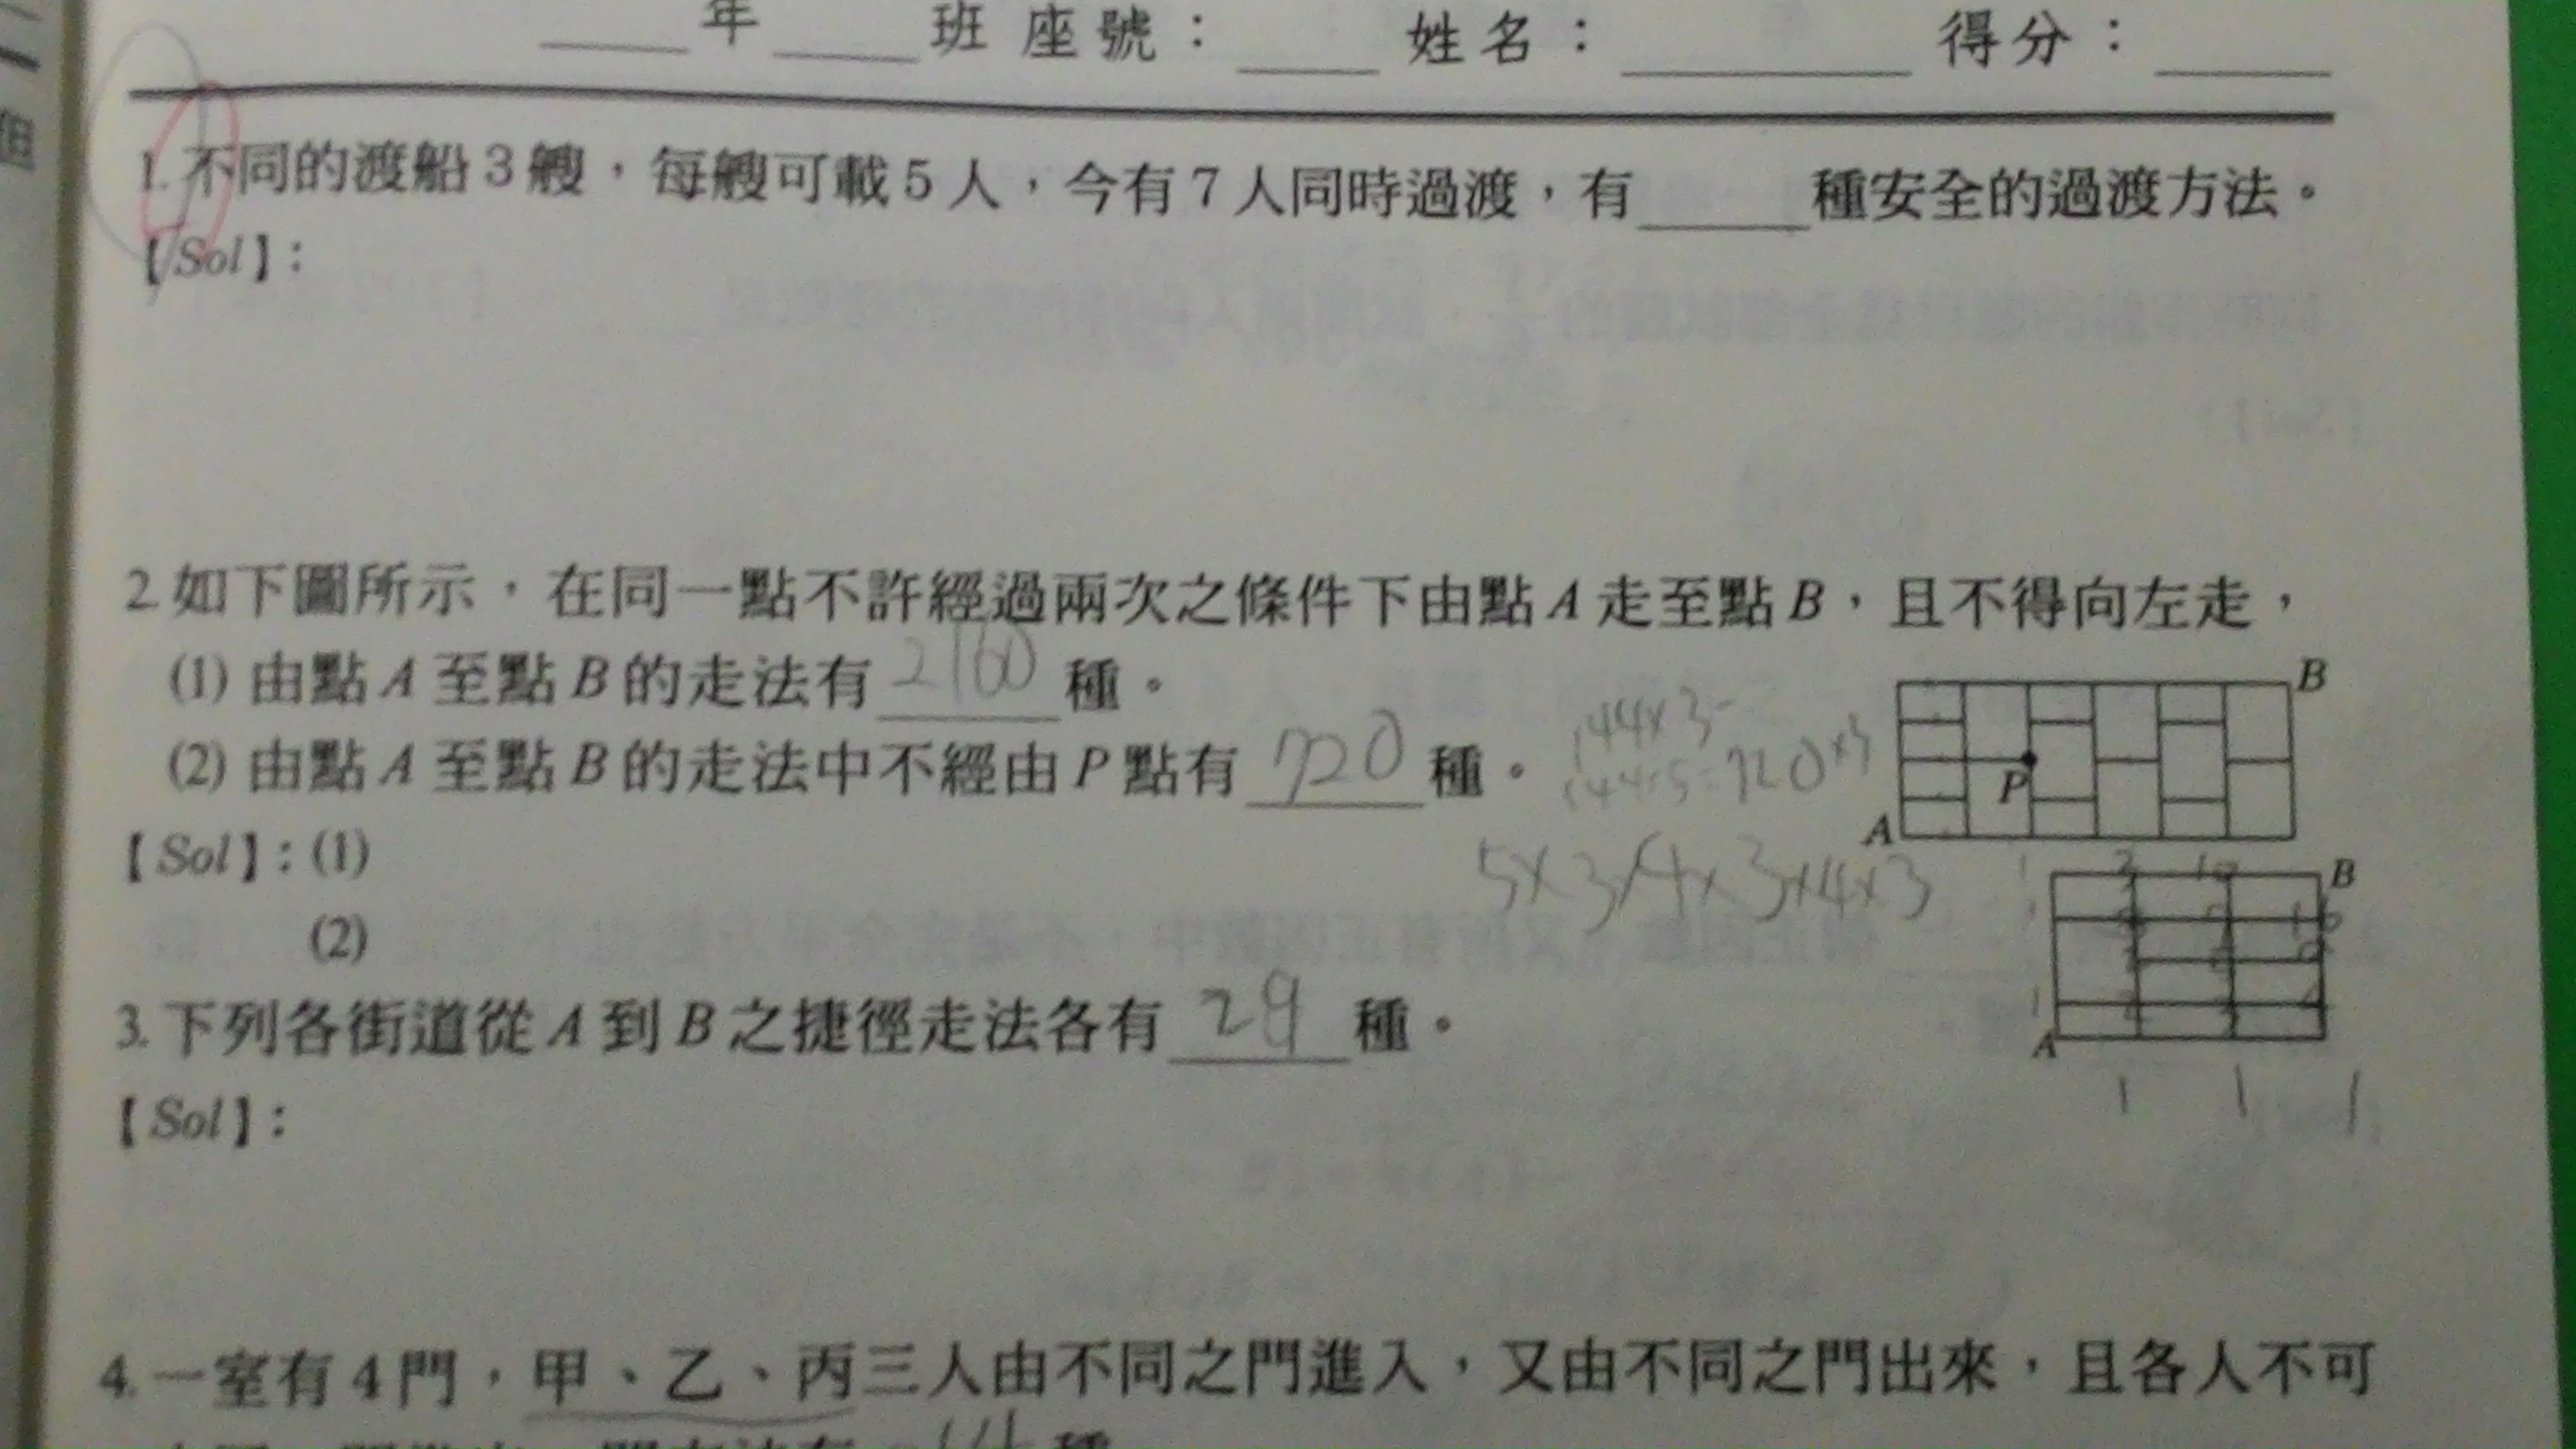 年 班 座號： 姓名： 得分：
1. 不同的渡船3艘，每艘可載5人，今有7人同時過渡，有 種安全的過渡方法。
【Sol】：
2. 如下圖所示，在同一點不許經過兩次之條件下由點A走至點B，且不得向左走，
(1) 由點A至點B的走法有 2160 種。
(2) 由點A至點B的走法中不經由P點有 720 種。
144×3
144×5=720×3
5×3×4×3×4×3
B
P
A
【Sol】：(1)
(2)
B
A
1 1 1
3. 下列各街道從A到B之捷徑走法各有 28 種。
【Sol】：
4. 一室有4門，甲、乙、丙三人由不同之門進入，又由不同之門出來，且各人不可